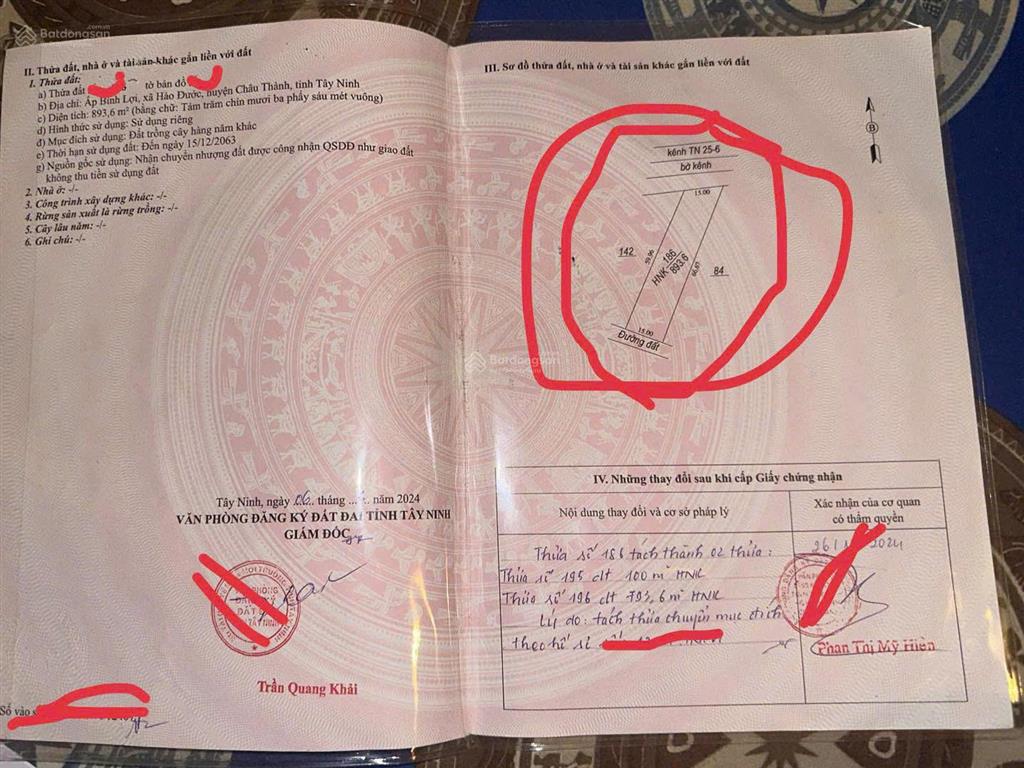 Batdongsan
.com.vn
II. Thửa đất, nhà ở và tài sản khác gắn liền với đất
1. Thửa đất:
a) Thửa đất tờ bản đồ
b) Địa chỉ: Ấp Bình Lợi, xã Hảo Đước, huyện Châu Thành, tỉnh Tây Ninh
c) Diện tích: 893,6 m² (bằng chữ: Tám trăm chín mươi ba phẩy sáu mét vuông)
d) Hình thức sử dụng: Sử dụng riêng
đ) Mục đích sử dụng: Đất trồng cây hàng năm khác
e) Thời hạn sử dụng đất: Đến ngày 15/12/2063
g) Nguồn gốc sử dụng: Nhận chuyển nhượng đất được công nhận QSDĐ như giao đất
không thu tiền sử dụng đất
2. Nhà ở: -/-
3. Công trình xây dựng khác: -/-
4. Rừng sản xuất là rừng trồng: -/-
5. Cây lâu năm: -/-
6. Ghi chú: -/-
Tây Ninh, ngày 06 tháng năm 2024
VĂN PHÒNG ĐĂNG KÝ ĐẤT ĐAI TỈNH TÂY NINH
GIÁM ĐỐC
Trần Quang Khải
Số vào
III. Sơ đồ thửa đất, nhà ở và tài sản khác gắn liền với đất
B
kênh TN 25-6
bờ kênh
15.00
142
59.96
HNK 186
893.6
66.87
84
15.00
Đường đất
Batdongsan
IV. Những thay đổi sau khi cấp Giấy chứng nhận
Nội dung thay đổi và cơ sở pháp lý
Xác nhận của cơ quan
có thẩm quyền
Thửa số 186 tách thành 02 thửa:
Thửa số 195 dt 100 m² HNK
Thửa số 196 dt 793,6 m² HNK
Lý do: tách thửa chuyển mục đích
theo hồ sơ
2024
Phan Thị Mỹ Hiền